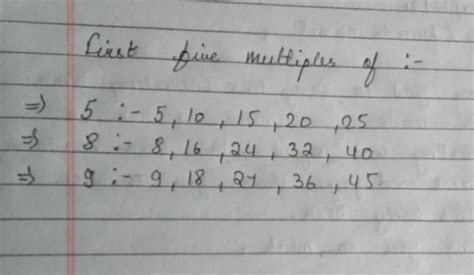 First five multiples of :-
=> 5 :- 5, 10, 15, 20, 25
=> 8 :- 8, 16, 24, 32, 40
=> 9 :- 9, 18, 27, 36, 45